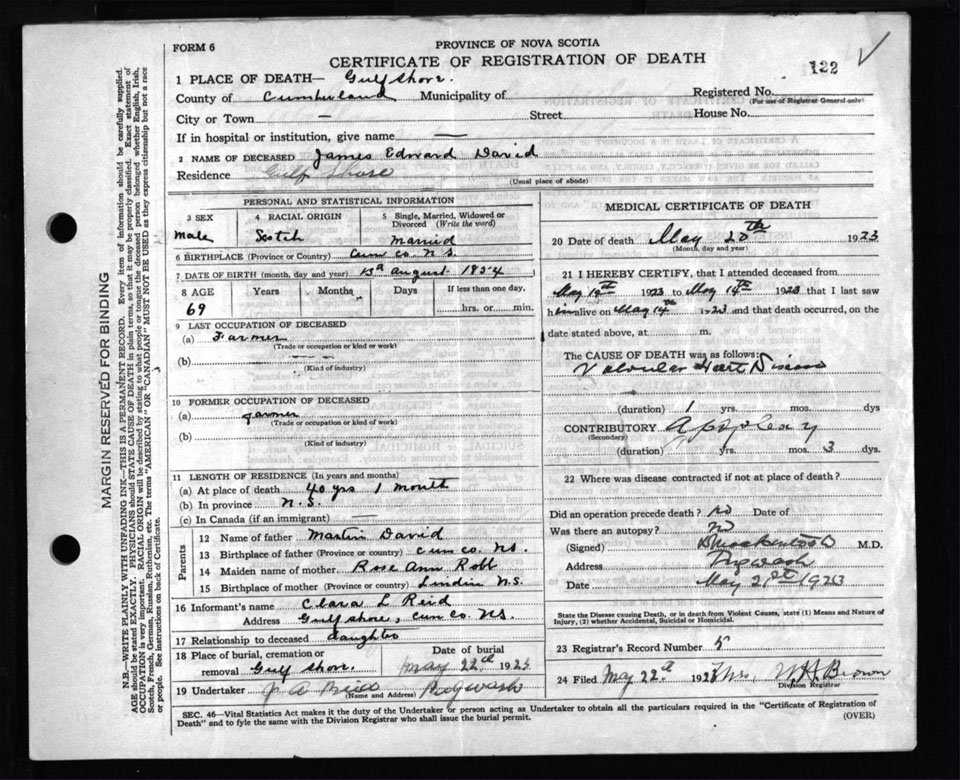 FORM 6
PROVINCE OF NOVA SCOTIA
CERTIFICATE OF REGISTRATION OF DEATH
122
1 PLACE OF DEATH— Gulf Shore.
County of Cumberland Municipality of Registered No.
(For use of Registrar General only)
City or Town — Street House No.
If in hospital or institution, give name —
2 NAME OF DECEASED James Edward David
Residence Gulf Shore
(Usual place of abode)
PERSONAL AND STATISTICAL INFORMATION
3 SEX 4 RACIAL ORIGIN 5 Single, Married, Widowed or Divorced (Write the word)
Male Scotch Married
6 BIRTHPLACE (Province or Country) Cum co. N S.
7 DATE OF BIRTH (month, day and year) 13th August 1854
8 AGE Years Months Days If less than one day,
69 hrs. or min.
9 LAST OCCUPATION OF DECEASED
(a) Farmer
(Trade or occupation or kind or work)
(b) — —
(Kind of industry)
10 FORMER OCCUPATION OF DECEASED
(a) Farmer
(Trade or occupation or kind or work)
(b)
(Kind of industry)
11 LENGTH OF RESIDENCE (In years and months)
(a) At place of death 40 yrs 1 month
(b) In province N.S.
(c) In Canada (if an immigrant) —
Parents
12 Name of father Martin David
13 Birthplace of father (Province or country) Cum co. NS.
14 Maiden name of mother Rose Ann Robb
15 Birthplace of mother (Province or country) N.S.
16 Informant's name Clara L Reid
Address Gulf shore, Cum co. NS.
17 Relationship to deceased daughter
18 Place of burial, cremation or removal Gulf Shore. Date of burial May 22nd 1923
19 Undertaker Pugwash
(Name and Address)
MEDICAL CERTIFICATE OF DEATH
20 Date of death May 1923
(Month, day and year)
21 I HEREBY CERTIFY, that I attended deceased from
May 1923 to May 14th 1923 that I last saw
him alive on May 14th 1923 and that death occurred, on the
date stated above, at m.
The CAUSE OF DEATH was as follows:
Valvular Heart Disease
(duration) 1 yrs. mos. dys
CONTRIBUTORY Apoplexy
(Secondary)
(duration) yrs. mos. 3 dys.
22 Where was disease contracted if not at place of death?
Did an operation precede death? no Date of
Was there an autopsy? no
(Signed) M.D.
Address Pugwash
Date May 21st 1923
State the Disease causing Death, or in death from Violent Causes, state (1) Means and Nature of Injury, (2) whether Accidental, Suicidal or Homicidal.
23 Registrar's Record Number 5
24 Filed May 22nd 1923 W H Brown
Division Registrar
SEC. 46—Vital Statistics Act makes it the duty of the Undertaker or person acting as Undertaker to obtain all the particulars required in the "Certificate of Registration of
Death" and to fyle the same with the Division Registrar who shall issue the burial permit. (OVER)
MARGIN RESERVED FOR BINDING
N.B.—WRITE PLAINLY WITH UNFADING INK—THIS IS A PERMANENT RECORD. Every item of information should be carefully supplied.
AGE should be stated EXACTLY. PHYSICIANS should STATE CAUSE OF DEATH in plain terms, so that it may be properly classified. Exact statement of
OCCUPATION is very important. RACIAL ORIGIN will be described by stating to what people or tongue the deceased person belonged whether English, Irish,
Scotch, French, German, Russian, Ruthenian, etc. The terms "AMERICAN" OR "CANADIAN" MUST NOT BE USED as they express citizenship but not a race
or people. See instructions on back of Certificate.